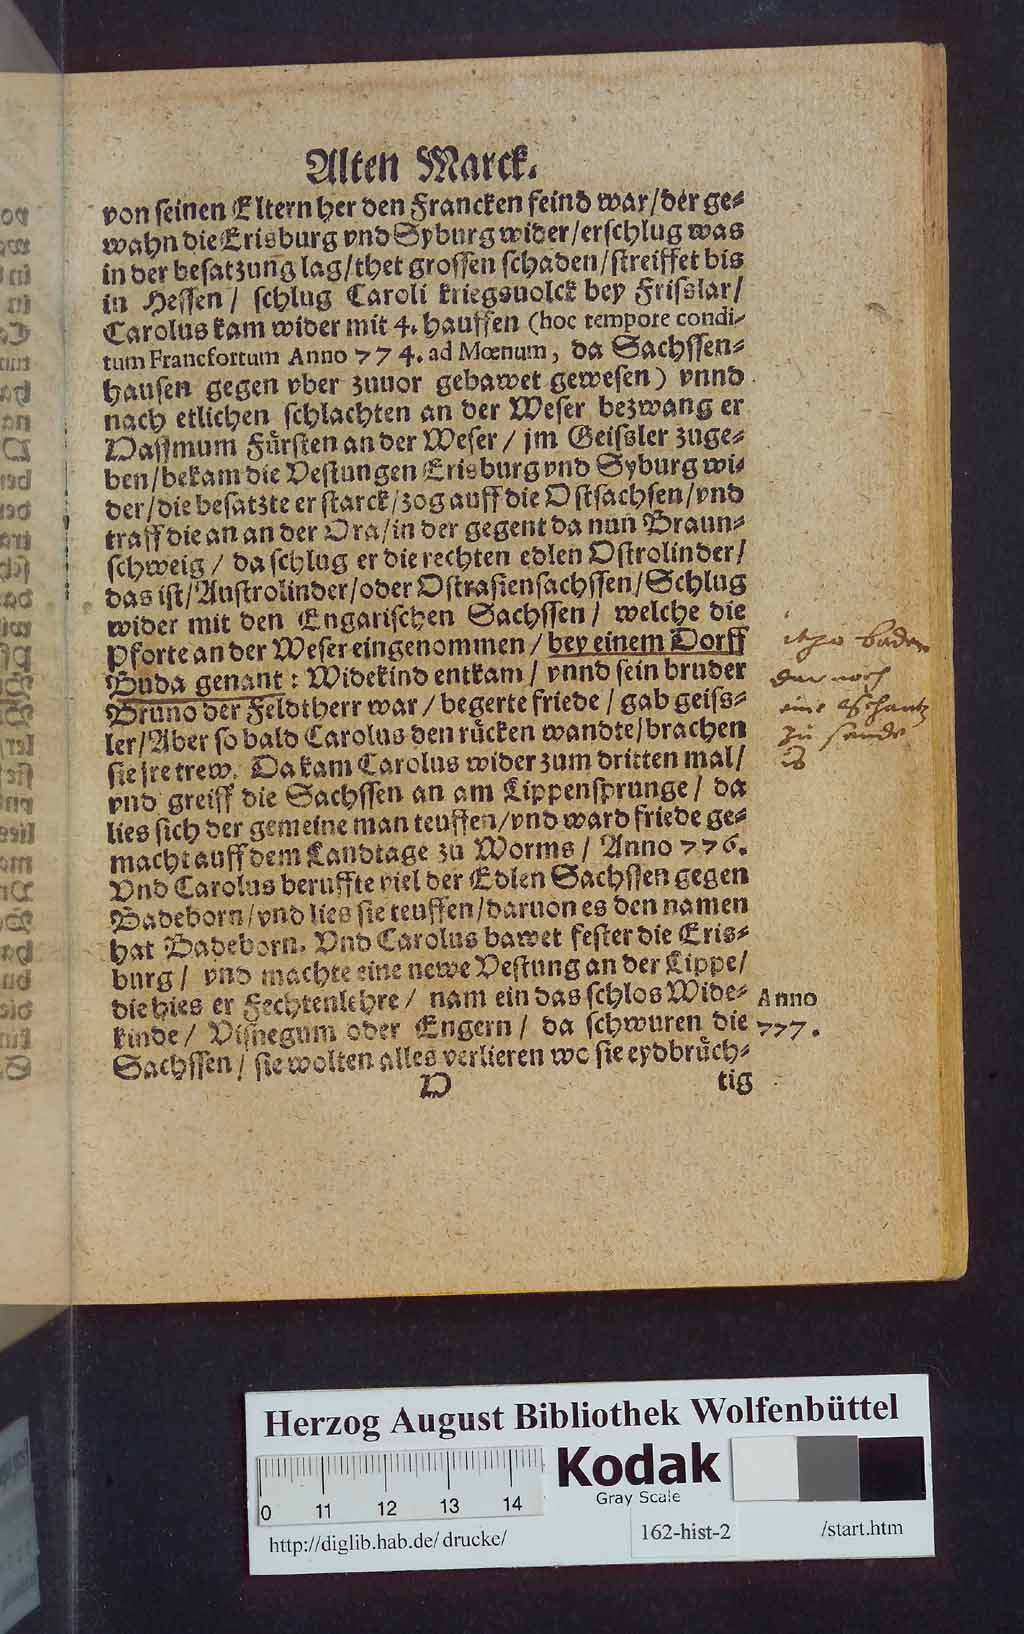 Alten Marck.
von seinen Eltern her den Francken feind war/der ge⸗
wahn die Erisburg vnd Syburg wider/erschlug was
in der besatzung lag/thet grossen schaden/streiffet bis
in Hessen/ schlug Caroli kriegsuolck bey Frisslar/
Carolus kam wider mit 4. hauffen (hoc tempore condi-
tum Francfortum Anno 774. ad Mœnum, da Sachssen⸗
hausen gegen vber zuuor gebawet gewesen) vnnd
nach etlichen schlachten an der Weser bezwang er
Dassmum Fürsten an der Weser/ jm Geissler zuge⸗
ben/bekam die Vestungen Erisburg vnd Syburg wi⸗
der/die besatzte er starck/zog auff die Ostsachsen/vnd
traff die an an der Ora/in der gegent da nun Braun⸗
schweig/ da schlug er die rechten edlen Ostrolinder/
das ist/Austrolinder/oder Ostrasiensachssen/Schlug
wider mit den Engarischen Sachssen/ welche die
Pforte an der Weser eingenommen/bey einem Dorff
Buda genant: Widekind entkam/ vnnd sein bruder
Bruno der Feldtherr war/begerte friede/gab geiss⸗
ler/Aber so bald Carolus den rücken wandte/brachen
sie jre trew. Da kam Carolus wider zum dritten mal/
vnd greiff die Sachssen an am Lippensprunge/ da
lies sich der gemeine man teuffen/vnd ward friede ge⸗
macht auff dem Landtage zu Worms/ Anno 776.
Vnd Carolus beruffte viel der Edlen Sachssen gegen
Badeborn/vnd lies sie teuffen/daruon es den namen
hat Badeborn. Vnd Carolus bawet fester die Eris⸗
burg/ vnd machte eine newe Vestung an der Lippe/
die hies er Fechtenlehre/ nam ein das schlos Wide⸗
kinde/ Visnegum oder Engern/ da schwuren die
Sachssen/ sie wolten alles verlieren wo sie eydbrüch⸗
D tig
itzo Baden
dar noch
eine Schantz
zu
is
Anno
777.
Herzog August Bibliothek Wolfenbüttel
0 11 12 13 14
Kodak
Gray Scale
http://diglib.hab.de/drucke/ 162-hist-2 /start.htm